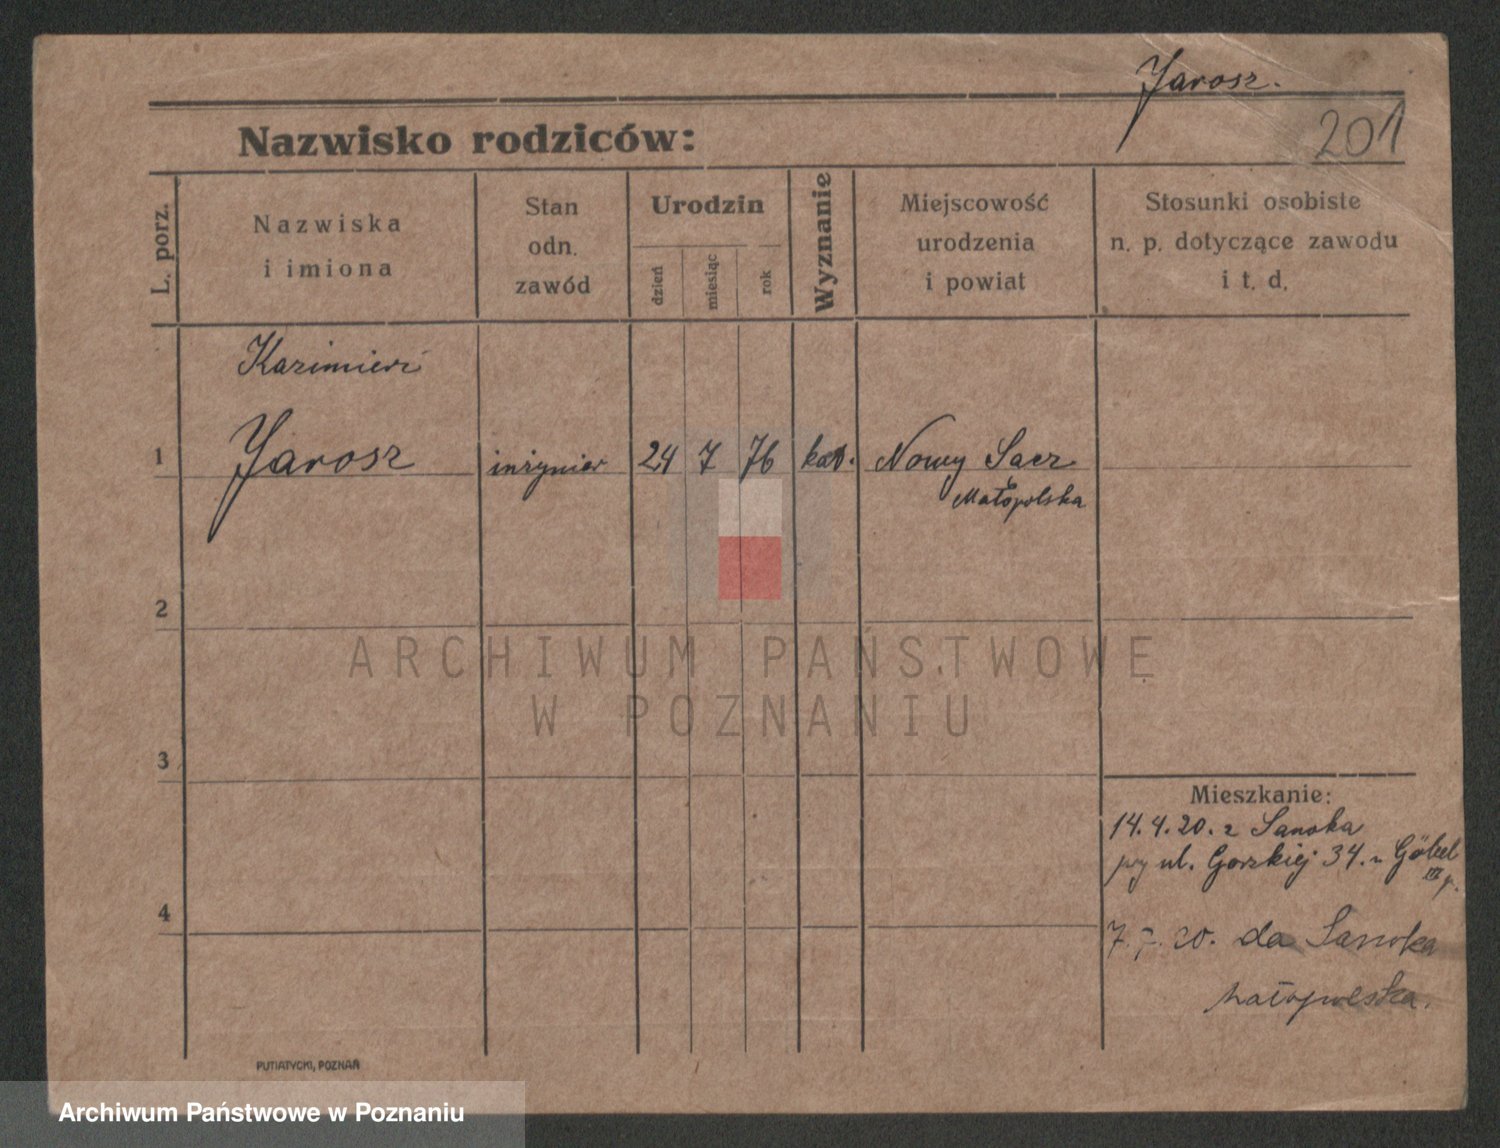 Jarosz.
201
Nazwisko rodziców:
L. porz.
Nazwiska
i imiona
Stan
odn.
zawód
Urodzin
dzień
miesiąc
rok
Wyznanie
Miejscowość
urodzenia
i powiat
Stosunki osobiste
n. p. dotyczące zawodu
i t. d.
Kazimierz
1 Jarosz inżynier 24 7 76 kat. Nowy Sacz
Małopolska
2
ARCHIWUM PAŃSTWOWE
W POZNANIU
3
Mieszkanie:
14.4.20. z Sanoka
przy ul. Gorzkiej 34. u Göbel
III p.
4
7.7.20. do Sanoka
Małopolska.
PUTIATYCKI, POZNAŃ
Archiwum Państwowe w Poznaniu